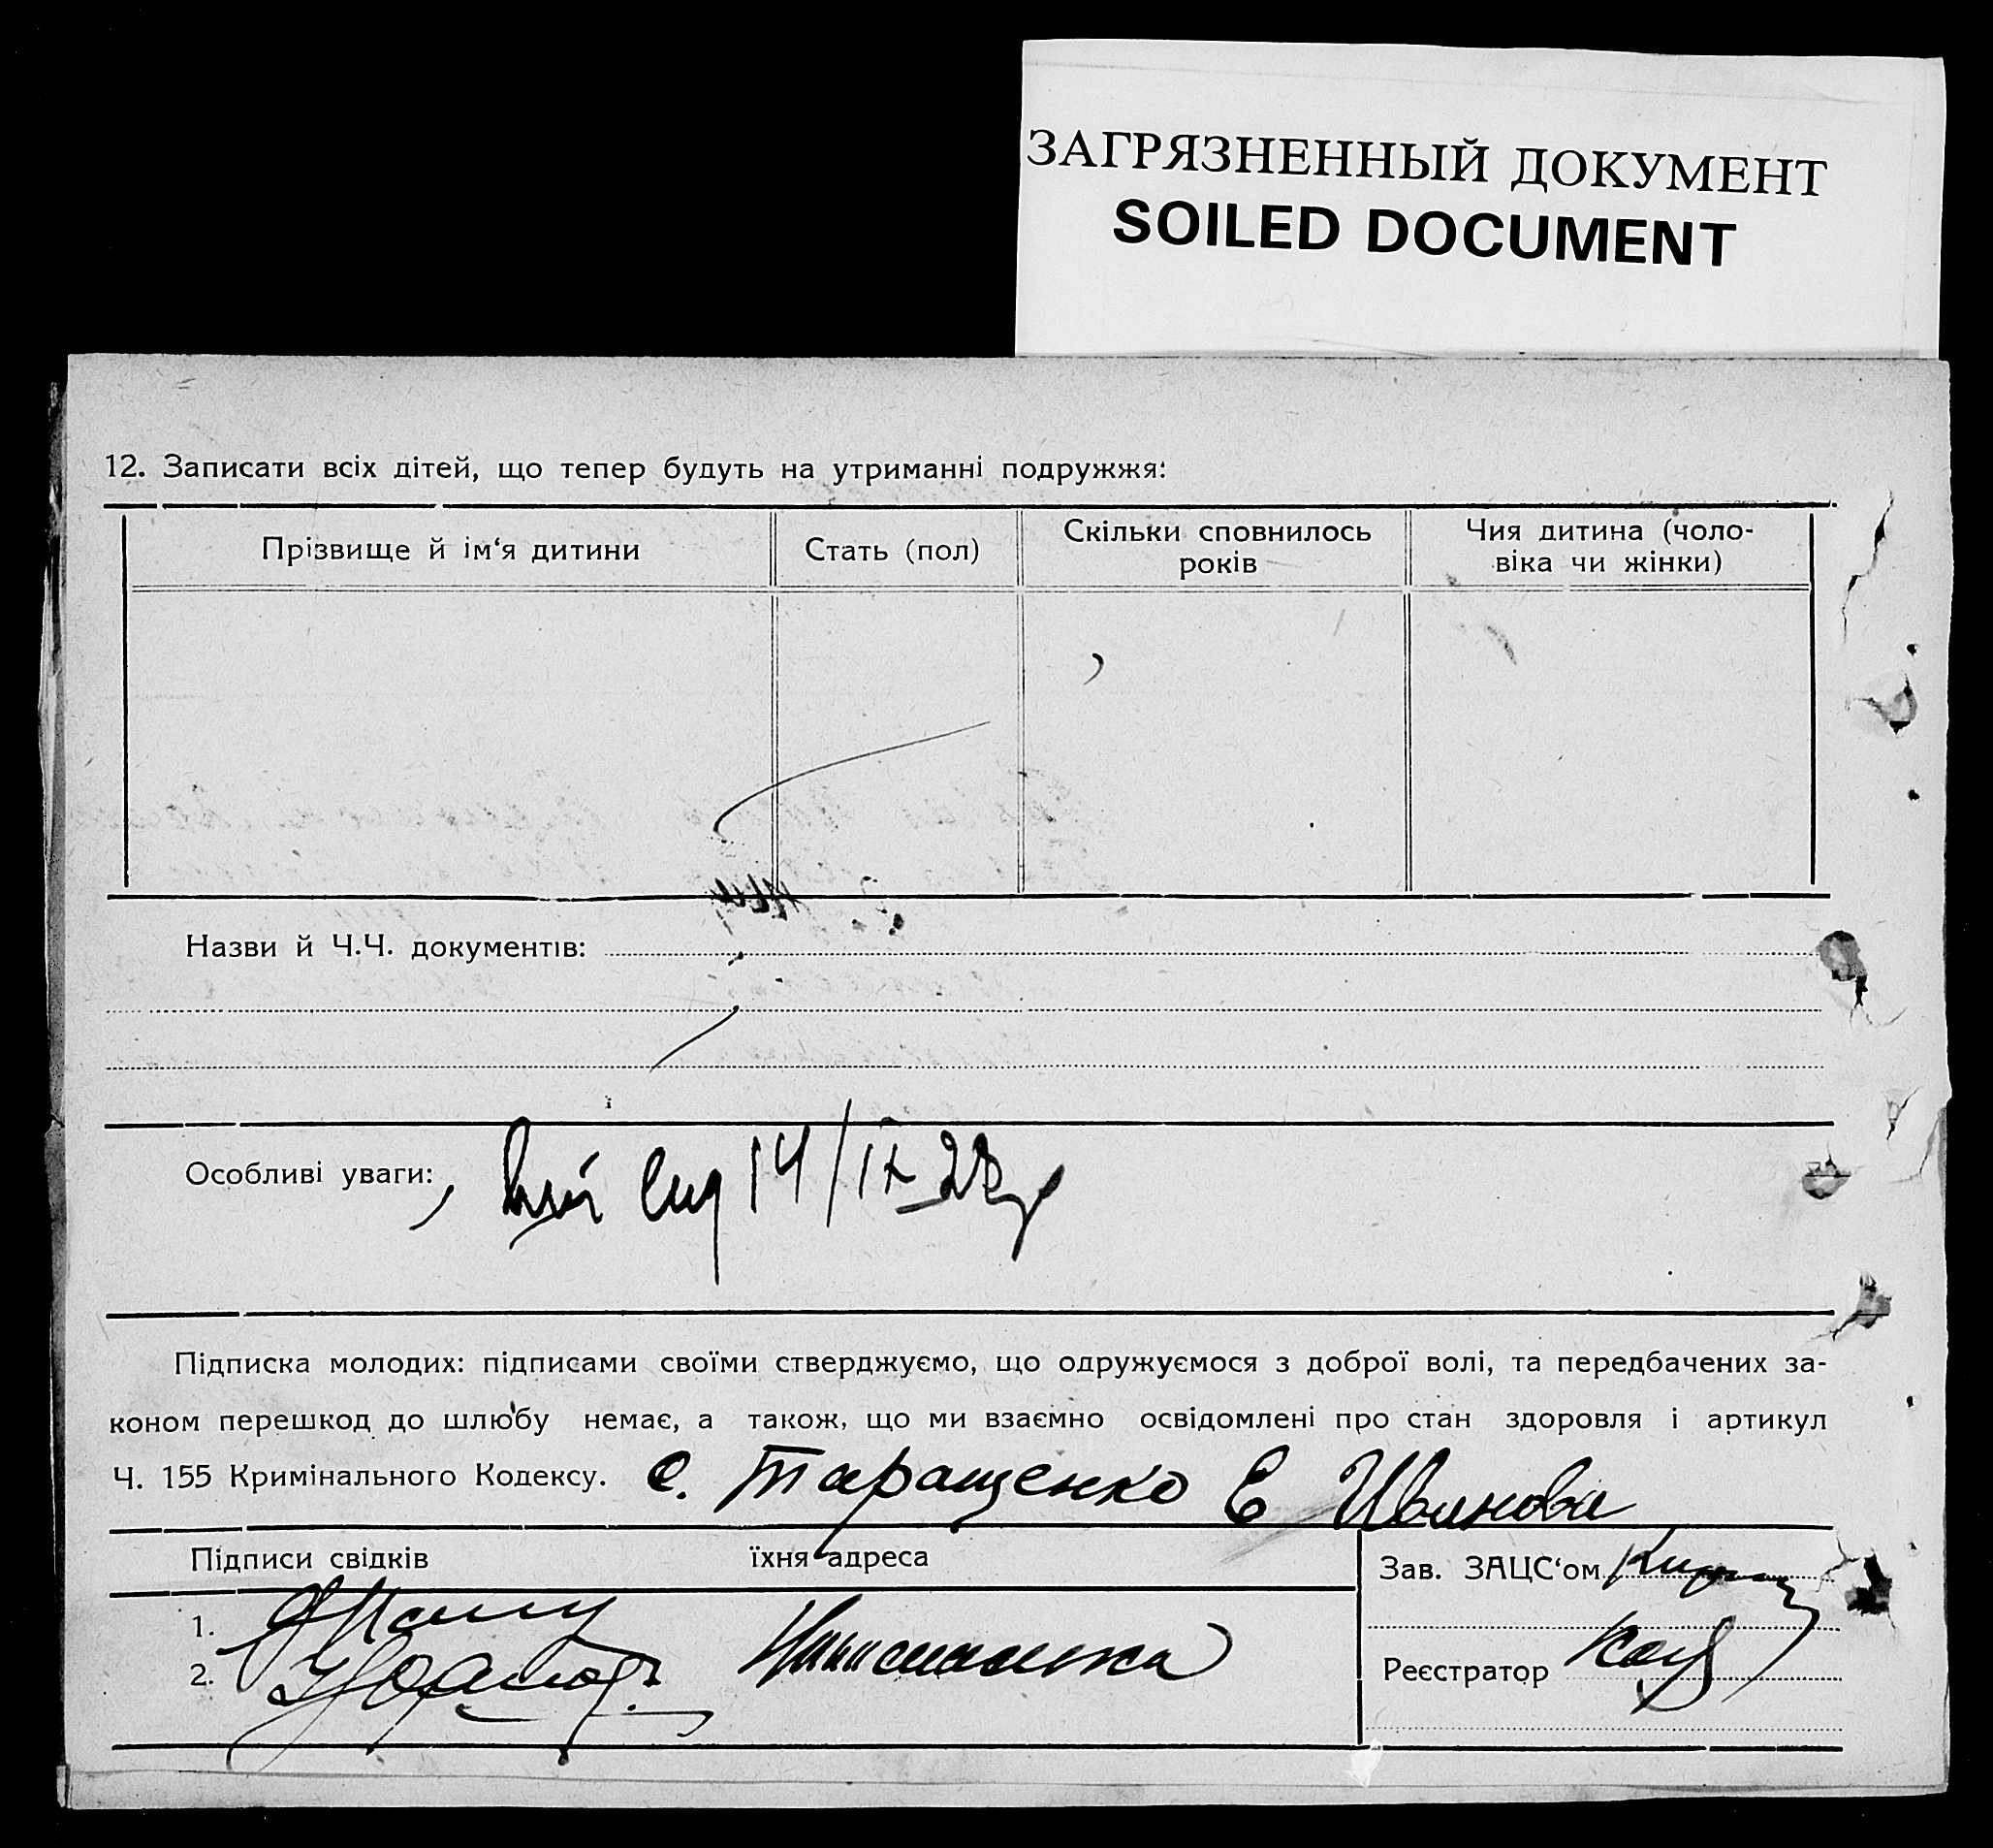 ЗАГРЯЗНЕННЫЙ ДОКУМЕНТ
SOILED DOCUMENT
12. Записати всіх дітей, що тепер будуть на утриманні подружжя:
Прізвище й ім‘я дитини
Стать (пол)
Скільки сповнилось
років
Чия дитина (чоло-
віка чи жінки)
Назви й Ч.Ч. документів:
Особливі уваги: 14/IX 28
Підписка молодих: підписами своїми стверджуємо, що одружуємося з доброї волі, та передбачених за-
коном перешкод до шлюбу немає, а також, що ми взаємно освідомлені про стан здоровля і артикул
Ч. 155 Кримінального Кодексу. С. Таращенко Є Иванова
Підписи свідків
їхня адреса
Зав. ЗАЦС‘ом
1.
2.
Реєстратор